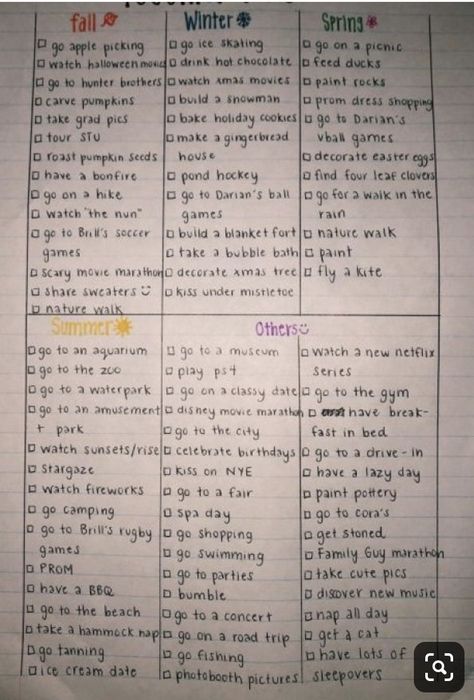 fall
☐ go apple picking
☐ watch halloween movies
☐ go to hunter brothers
☐ carve pumpkins
☐ take grad pics
☐ tour STU
☐ roast pumpkin seeds
☐ have a bonfire
☐ go on a hike
☐ watch "the nun"
☐ go to Brill's soccer
games
☐ scary movie marathon
☐ share sweaters
☐ nature walk
Winter
☐ go ice skating
☐ drink hot chocolate
☐ watch xmas movies
☐ build a snowman
☐ bake holiday cookies
☐ make a gingerbread
house
☐ pond hockey
☐ go to Darian's ball
games
☐ build a blanket fort
☐ take a bubble bath
☐ decorate xmas tree
☐ kiss under mistletoe
Spring
☐ go on a picnic
☐ feed ducks
☐ paint rocks
☐ prom dress shopping
☐ go to Darian's
vball games
☐ decorate easter eggs
☐ find four leaf clovers
☐ go for a walk in the
rain
☐ nature walk
☐ paint
☐ fly a kite
Summer
☐ go to an aquarium
☐ go to the zoo
☐ go to a waterpark
☐ go to an amusement
+ park
☐ watch sunsets/rise
☐ stargaze
☐ watch fireworks
☐ go camping
☐ go to Brill's rugby
games
☐ PROM
☐ have a BBQ
☐ go to the beach
☐ take a hammock nap
☐ go tanning
☐ ice cream date
Others
☐ go to a museum
☐ play ps4
☐ go on a classy date
☐ disney movie marathon
☐ go to the city
☐ celebrate birthdays
☐ kiss on NYE
☐ go to a fair
☐ spa day
☐ go shopping
☐ go swimming
☐ go to parties
☐ bumble
☐ go to a concert
☐ go on a road trip
☐ go fishing
☐ photobooth pictures
☐ watch a new netflix
series
☐ go to the gym
☐ have break-
fast in bed
☐ go to a drive-in
☐ have a lazy day
☐ paint pottery
☐ go to cora's
☐ get stoned
☐ Family Guy marathon
☐ take cute pics
☐ discover new music
☐ nap all day
☐ get a cat
☐ have lots of
sleepovers